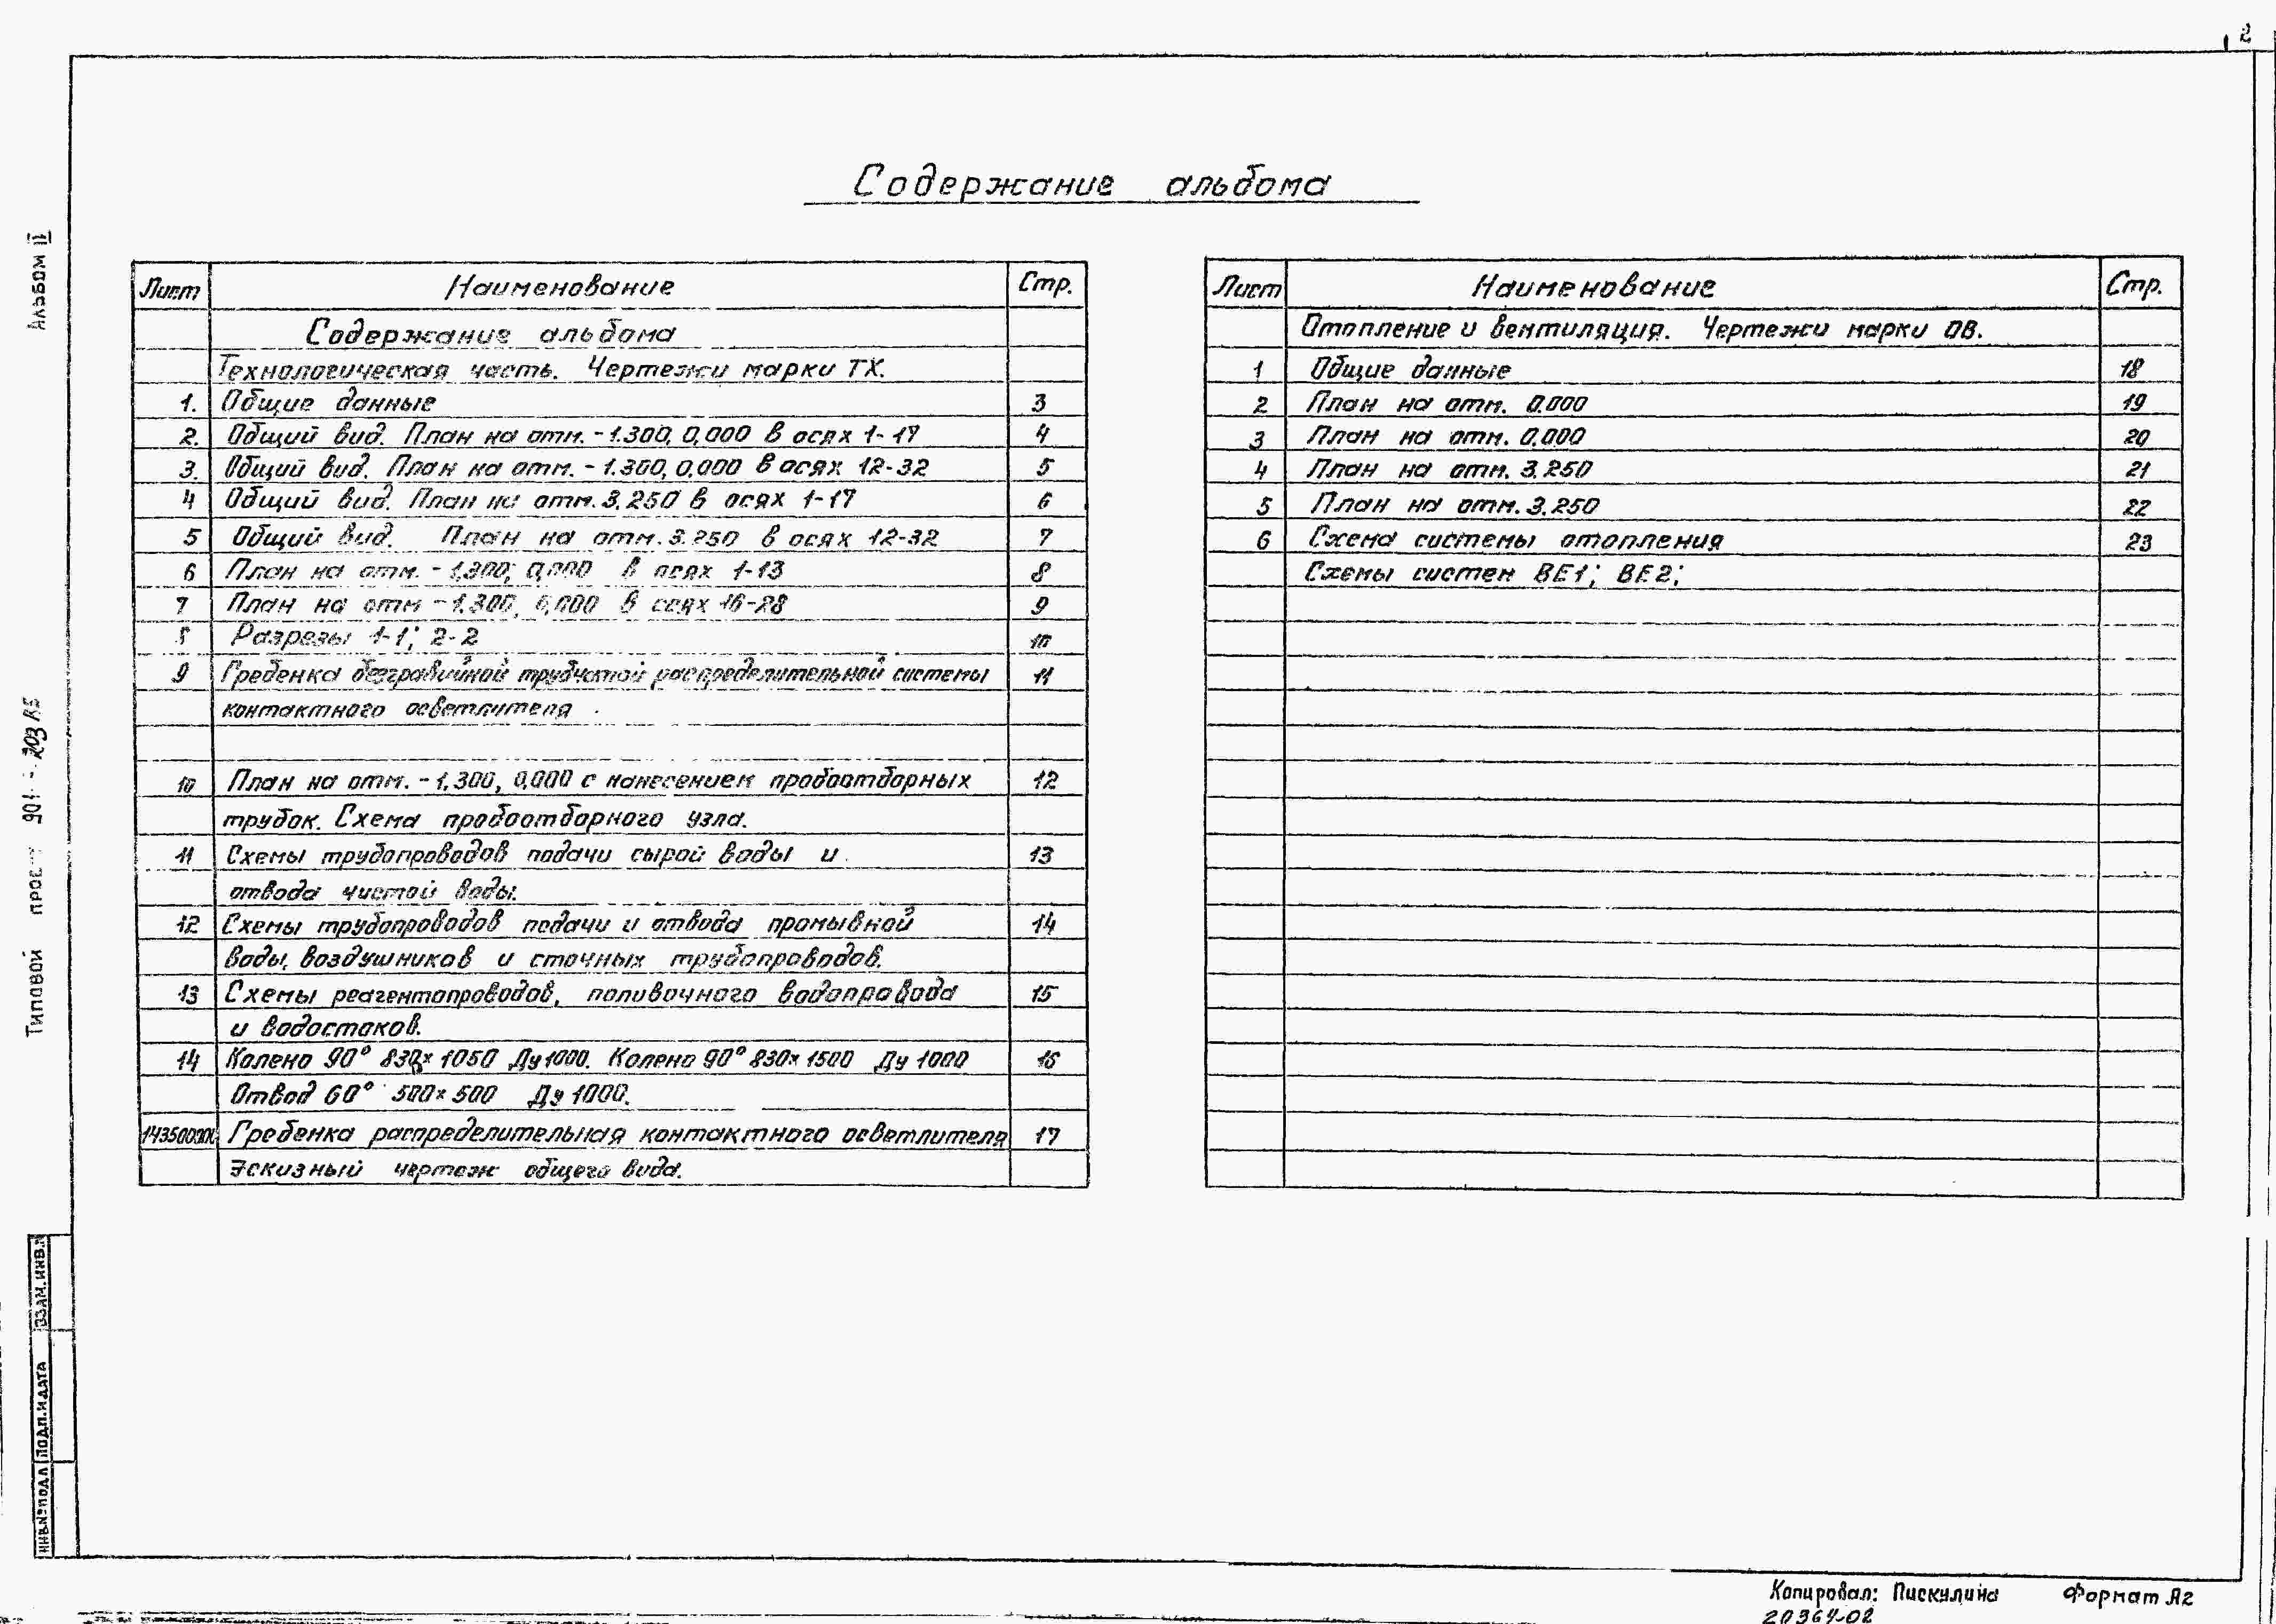 2
Содержание альбома
Альбом II
Лист Наименование Стр.
Содержание альбома
Технологическая часть. Чертежи марки ТХ.
1. Общие данные 3
2. Общий вид. План на отм. -1.300, 0,000 в осях 1-17 4
3. Общий вид. План на отм. -1.300, 0,000 в осях 12-32 5
4 Общий вид. План на отм. 3.250 в осях 1-17 6
5 Общий вид. План на отм. 3.250 в осях 12-32 7
6 План на отм. -1,300; 0,000 в осях 1-13 8
7 План на отм -1.300, 0,000 в осях 16-28 9
8 Разрезы 1-1; 2-2 10
9 Гребенка безгравийной трубчатой распределительной системы 11
контактного осветлителя
10 План на отм. -1,300, 0,000 с нанесением пробоотборных 12
трубок. Схема пробоотборного узла.
11 Схемы трубопроводов подачи сырой воды и 13
отвода чистой воды.
12 Схемы трубопроводов подачи и отвода промывной 14
воды, воздушников и сточных трубопроводов.
13 Схемы реагентопроводов, поливочного водопровода 15
и водостоков.
14 Колено 90° 830х1050 Ду1000. Колено 90° 830х1500 Ду 1000 16
Отвод 60° 500х500 Ду 1000.
Гребенка распределительная контактного осветлителя 17
Эскизный чертеж общего вида.
Лист Наименование Стр.
Отопление и вентиляция. Чертежи марки ОВ.
1 Общие данные 18
2 План на отм. 0.000 19
3 План на отм. 0.000 20
4 План на отм. 3.250 21
5 План на отм. 3.250 22
6 Схема системы отопления 23
Схемы систем ВЕ1; ВЕ2;
Типовой 901-
ВЗАМ.ИНВ.№
ПОДП.И ДАТА
ИНВ.№ПОДЛ
Копировал: Пискулина Формат А2
20364-02